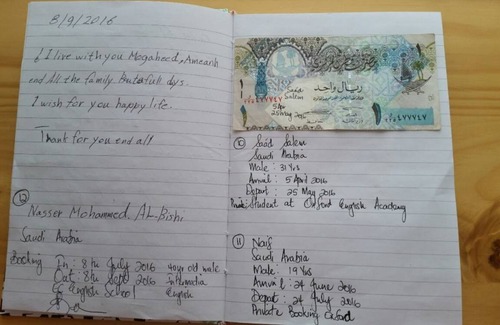 8/9/2016
I live with you Mogaheed, Ameanh
end All the family Butafull dys.
I wish for you happy life.
Thank for you end all
12
Nasser Mohammed AL-Bishi
Saudi Arabia
Booking In: 8th July 2016 40yr old male
Out: 8th Sept 2016 Intermedia
English School English
ريال واحد
١
Saad
Salem
5 Apr
25 May 2016
٤٧٧٧٤٧
١
٤٧٧٧٤٧
10 Saad Salem
Saudi Arabia
Male: 31 Yrs
Arrival: 5 April 2016
Depart: 25 May 2016
Student at Oxford English Academy
11 Naif
Saudi Arabia
Male: 19 Yrs
Arrival: 24 June 2016
Depart: 24 July 2016
Private Booking Oxford